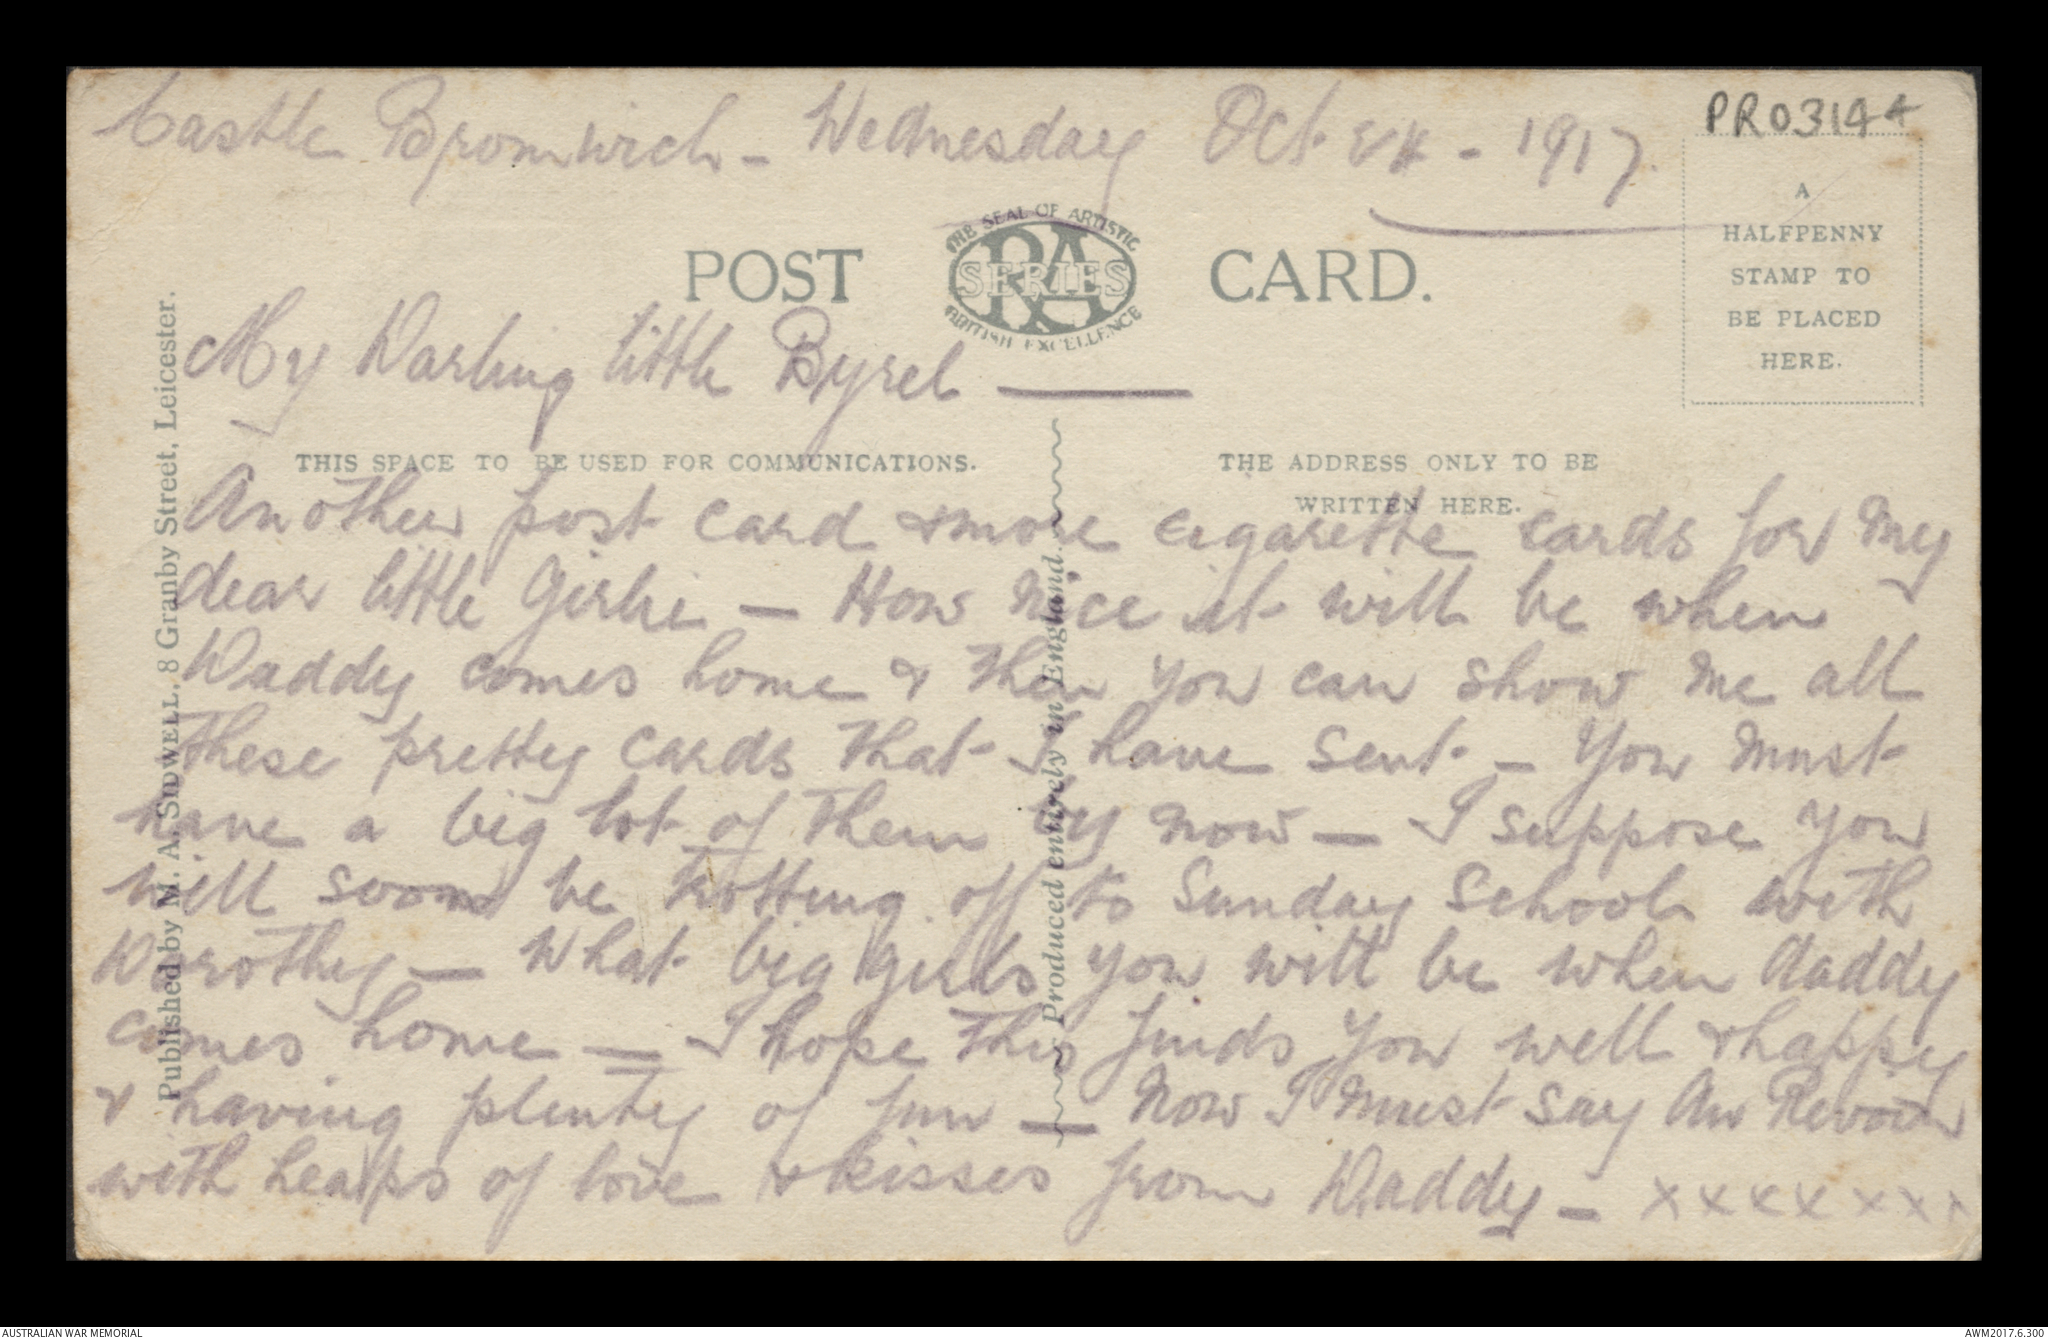 PRO3144
Castle Bromwich - Wednesday Oct 24 - 1917.
A
HALFPENNY
STAMP TO
BE PLACED
HERE.
THE SEAL OF ARTISTIC
RA
SERIES
BRITISH EXCELLENCE
POST CARD.
My Darling little Byrel —
THIS SPACE TO BE USED FOR COMMUNICATIONS.
THE ADDRESS ONLY TO BE
WRITTEN HERE.
Another post card & more cigarette cards for My
dear little Girlie — How Nice it will be when
Daddy comes home & then you can show me all
these pretty cards that I have sent - You Must
have a big lot of them by now — I suppose you
will soon be trotting off to Sunday School with
Dorothy — What big girls you will be when daddy
comes home — I hope this finds you well & happy
& having plenty of fun — Now I Must say Au Revoir
with heaps of love & kisses from Daddy - x x x x x x x x
Published by M. A. SOWELL, 8 Granby Street, Leicester.
Produced entirely in England.
AUSTRALIAN WAR MEMORIAL
AWM2017.6.300